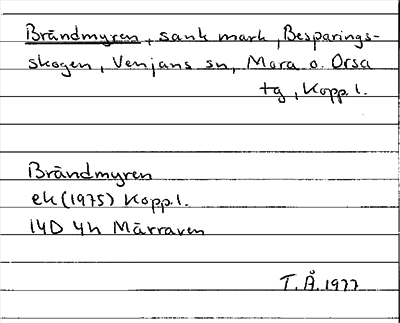 Brändmyren, sank mark, Besparings-
skogen, Venjans sn, Mora o. Orsa
tg, Kopp. l.
Brändmyren
ek (1975) Kopp l.
14D 4h Märraven
T. Å. 1977